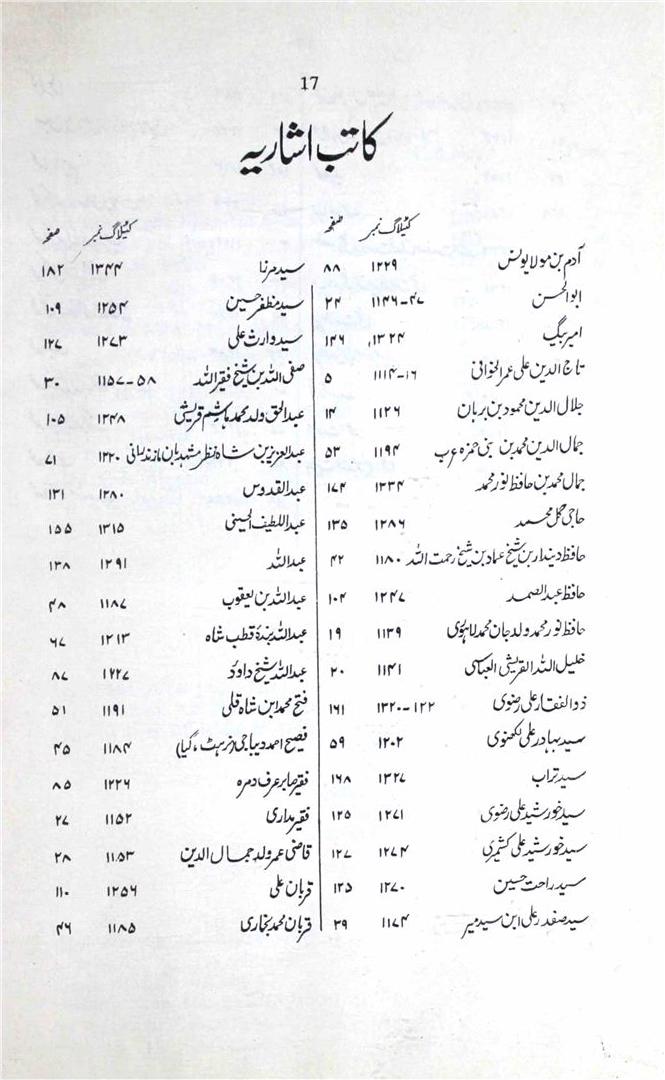 17
کاتب اشاریہ
کیٹلاگ نمبر صفحہ
آدم بن مولا یونس ۱۲۲۹ ۸۸
ابوالحسن ۴۷-۱۱۴۶ ۲۴
امیر بیگ ۱۳۲۴ ۱۴۶
تاج الدین علی عمر الخوانی ۱۶-۱۱۱۴ ۵
جلال الدین محمود بن برہان ۱۱۲۶ ۱۴
جمال الدین محمد بن بنی حمزہ عرب ۱۱۹۴ ۵۳
جمال محمد بن حافظ نور محمد ۱۳۳۴ ۱۷۴
حاجی گل محمد ۱۲۸۶ ۱۳۵
حافظ دیندار بن شیخ عماد بن شیخ رحمت اللہ ۱۱۸۰ ۴۲
حافظ عبدالصمد ۱۲۴۷ ۱۰۴
حافظ نور محمد ولد جان محمد لاہوری ۱۱۳۹ ۱۹
خلیل اللہ القریشی العباسی ۱۱۴۱ ۲۰
ذوالفقار علی رضوی ۱۲۲-۱۳۲۰ ۱۶۱
سید بہادر علی لکھنوی ۱۲۰۲ ۵۹
سید تراب ۱۳۲۷ ۱۶۸
سید خورشید علی رضوی ۱۲۷۱ ۱۲۵
سید خورشید علی کشمیری ۱۲۷۴ ۱۲۷
سید راحت حسین ۱۲۷۰ ۱۲۵
سید صفدر علی ابن سید میر ۱۱۷۴ ۳۹
کیٹلاگ نمبر صفحہ
سید مرزا ۱۳۴۴ ۱۸۲
سید مظفر حسین ۱۲۵۴ ۱۰۹
سید وارث علی ۱۲۷۳ ۱۲۷
صفی اللہ بن شیخ فقیر اللہ ۵۸-۱۱۵۷ ۳۰
عبدالحق ولد محمد ہاشم قریشی ۱۲۴۸ ۱۰۵
عبدالعزیز بن شاہ نظر مشہد بان مازندرانی ۱۲۲۰ ۷۱
عبدالقدوس ۱۲۸۰ ۱۳۱
عبداللطیف الحسینی ۱۳۱۵ ۱۵۵
عبداللہ ۱۲۹۱ ۱۳۸
عبداللہ بن یعقوب ۱۱۸۷ ۴۸
عبداللہ بندۂ قطب شاہ ۱۲۱۳ ۶۷
عبداللہ شیخ داؤد ۱۲۲۷ ۸۷
فتح محمد ابن شاہ قلی ۱۱۹۱ ۵۱
فصیح احمد دیباجی (نرہٹ، گیا) ۱۱۸۴ ۴۵
فقیر صابر عرف دمرہ ۱۲۲۶ ۸۵
فقیر مداری ۱۱۵۲ ۲۷
قاضی عمر ولد جمال الدین ۱۱۵۳ ۲۸
قربان علی ۱۲۵۶ ۱۱۰
قربان محمد بخاری ۱۱۸۵ ۴۶